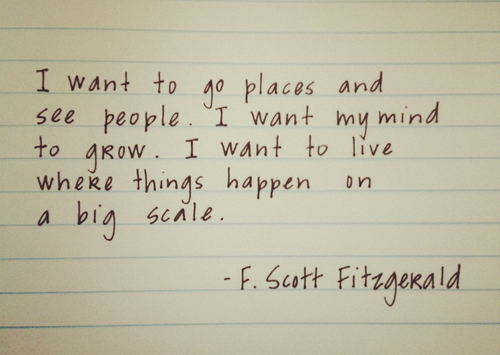 I want to go places and
see people. I want my mind
to gRow. I want to live
wheRe things happen on
a big scale.
- F. Scott FitzgeRald